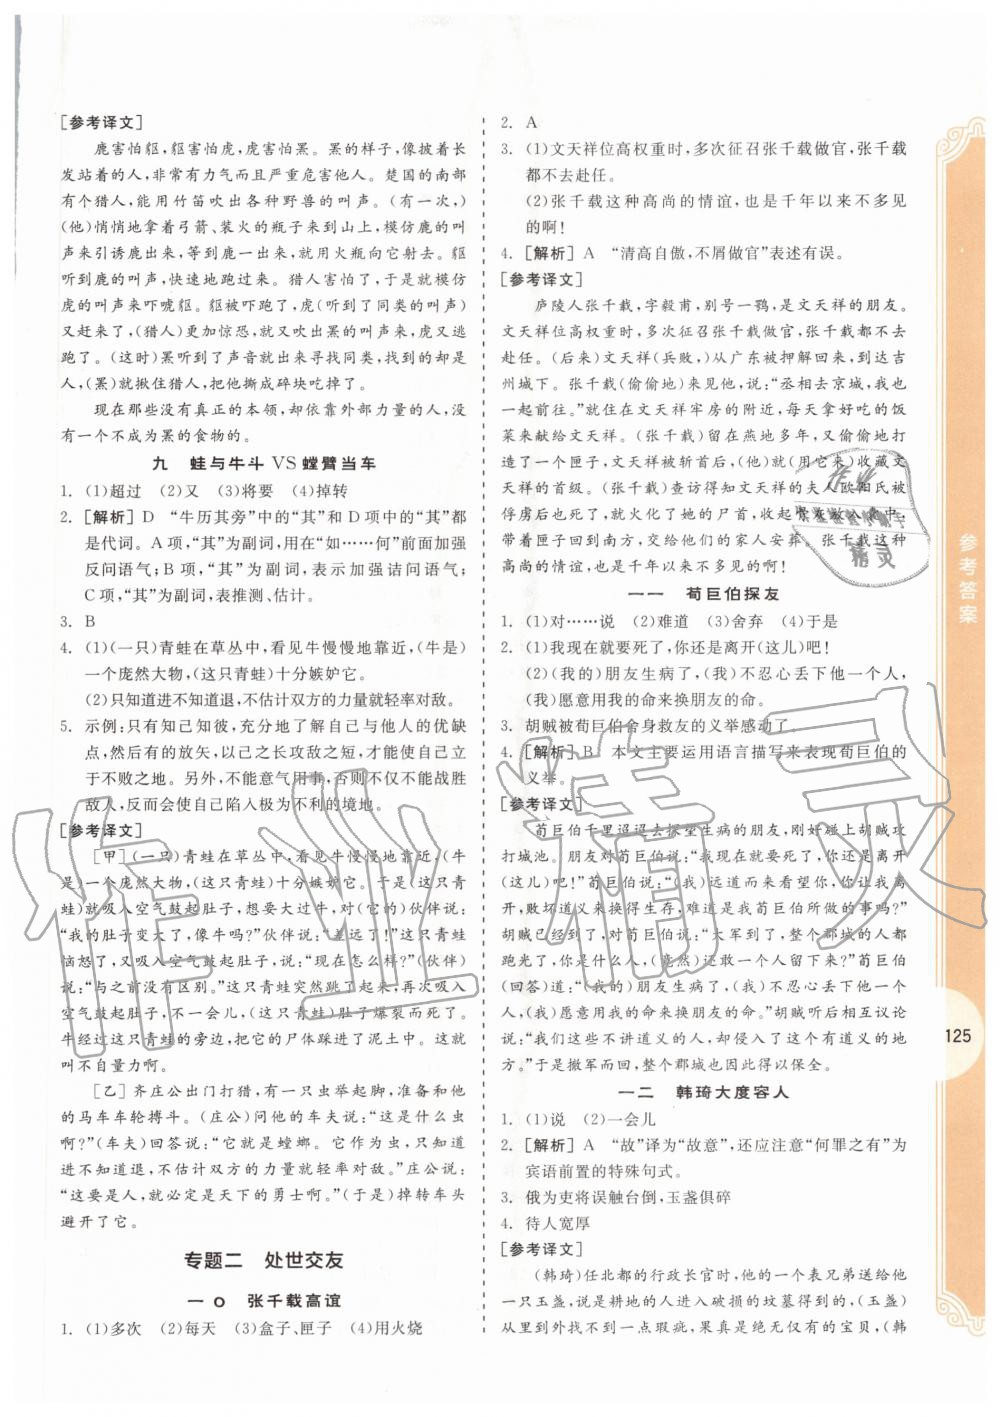 [参考译文]
鹿害怕貙,貙害怕虎,虎害怕罴。罴的样子,披着长
发站着的人,非常有力气而且害人厉害。楚国的南部
有个猎人,能用竹笛吹出各种野兽的叫声。(有一次,)
(他)悄悄地拿着弓箭、装火的瓶子来到山上,模仿鹿的
叫声来引诱鹿出来,等到鹿一出来,就用火瓶向它射去。貙
听到鹿的叫声,快速地跑了过来。猎人害怕了,于是就模仿
虎的叫声来吓唬貙。貙被吓跑了,虎(听到了同类的叫声)
又赶来了,(猎人)更加惊恐,就又吹出罴的叫声来,虎又逃
跑了。(这时)罴听到了声音就出来寻找同类,找到的却是
人,(罴)就揪住猎人,把他撕成碎块吃掉了。
现在那些没有真正的本领,却依靠外部力量的人,没
有一个不成为罴的食物的。
九 蛙与牛斗 VS 螳臂当车
1. (1)超过 (2)又 (3)将要 (4)掉转
2. [解析] D “牛历其旁”中的“其”和 D 项中的“其”都
是代词。A 项,“其”为副词,用在“如……何”前面加强
反问语气;B 项,“其”为副词,表示加强诘问语气;
C 项,“其”为副词,表推测、估计。
3. B
4. (1)(一只)青蛙在草丛中,看见牛慢慢地走着,(牛是)
一个庞然大物,(这只青蛙)十分嫉妒它。
(2)只知道进不知道退,不估计双方的力量就轻率对敌。
5. 示例:只有知己知彼,充分地了解自己与他人的优缺
点,然后有的放矢,以己之长攻敌之短,才能使自己立
于不败之地。另外,不能意气用事,否则不仅不能战胜
敌人,反而会使自己陷入极为不利的境地。
[参考译文]
[甲](一只)青蛙在草丛中,看见牛慢慢地走着,(牛
是)一个庞然大物,(这只青蛙)十分嫉妒它。于是(这只青
蛙)就吸入空气鼓起肚子,想要大过牛,对(它的)伙伴说:
“我的肚子变大了,像牛吗?”伙伴说:“差远了!”(这只)青蛙
恼怒了,又吸入空气鼓起肚子,说:“现在怎么样?”(伙伴)
说:“与之前没有区别。”(这只)青蛙突然跳了起来,再次吸入
空气鼓起肚子,不一会儿,(这只青蛙)肚子爆裂而死了。
牛经过这只青蛙的旁边,把它的尸体踩进了泥土中。这真
是不自量力啊。
[乙] 齐庄公出门打猎,有一只虫举起脚,将要和他
的马车车轮搏斗。(庄公)问他的车夫说:“这是什么虫
啊?”(车夫)回答说:“它就是螳螂。它作为虫,只知道
进不知道退,不估计双方的力量就轻率对敌。”庄公说:
“这要是人,就必定是天下的勇士啊。”(于是)掉转车头
避开了它。
专题二 处世交友
一〇 张千载高谊
1. (1)多次 (2)每天 (3)盒子、匣子 (4)用火烧
2. A
3. (1)文天祥位高权重时,多次征召张千载做官,张千载
都不去赴任。
(2)张千载这种高尚的情谊,也是千年以来不多见
的啊!
4. [解析] A “清高自傲,不屑做官”表述有误。
[参考译文]
庐陵人张千载,字毅甫,别号一鹗,是文天祥的朋友。
文天祥位高权重时,多次征召张千载做官,张千载都不去
赴任。(后来)文天祥(兵败,)从广东被押解回来,到达吉
州城下。张千载(偷偷地)来见他,说:“丞相去京城,我也
一起前往。”就住在文天祥牢房的附近,每天拿好吃的饭
菜来献给文天祥。(张千载)留在燕地多年,又偷偷地打
造了一个匣子,文天祥被斩首后,(他)就(用它来)收藏文
天祥的首级。(张千载)查访得知文天祥的夫人欧阳氏被
俘虏后也死了,就火化了她的尸首,
带着匣子回到南方,交给他们的家人安葬。张千载这种
高尚的情谊,也是千年以来不多见的啊!
一一 荀巨伯探友
1. (1)对……说 (2)难道 (3)舍弃 (4)于是
2. (1)我现在就要死了,你还是离开(这儿)吧!
(2)(我的)朋友生病了,(我)不忍心丢下他一个人,
(我)愿意用我的命来换朋友的命。
3. 胡贼被荀巨伯舍身救友的义举感动了。
4. [解析] B 本文主要运用语言描写来表现荀巨伯的
义举。
[参考译文]
荀巨伯千里迢迢去探望生病的朋友,刚好碰上胡贼攻
打城池。朋友对荀巨伯说:“我现在就要死了,你还是离开
(这儿)吧!”荀巨伯说:“(我)远道而来看望你,你让我离
开,败坏道义来换得生存,难道是我荀巨伯所做的事吗?”
胡贼已经到了,对荀巨伯说:“大军到了,整个郡城的人都
跑光了,你是什么人,(竟然)还敢一个人留下来?”荀巨伯
(回答)道:“(我的)朋友生病了,(我)不忍心丢下他一个人,
(我)愿意用我的命来换朋友的命。”胡贼听后相互议论
说:“我们这些不讲道义的人,却侵入了这个有道义的地
方。”于是撤军而回,整个郡城也因此得以保全。
一二 韩琦大度容人
1. (1)说 (2)一会儿
2. [解析] A “故”译为“故意”,还应注意“何罪之有”为
宾语前置的特殊句式。
3. 俄为吏将误触台倒,玉盏俱碎
4. 待人宽厚
[参考译文]
(韩琦)任北都的行政长官时,他的一个表兄弟送给他
一只玉盏,说是耕地的人进入破损的坟墓得到的,(玉盏)
从里到外找不到一点瑕疵,果真是绝无仅有的宝贝,(韩
参考答案
125
作业精灵
作业
精灵